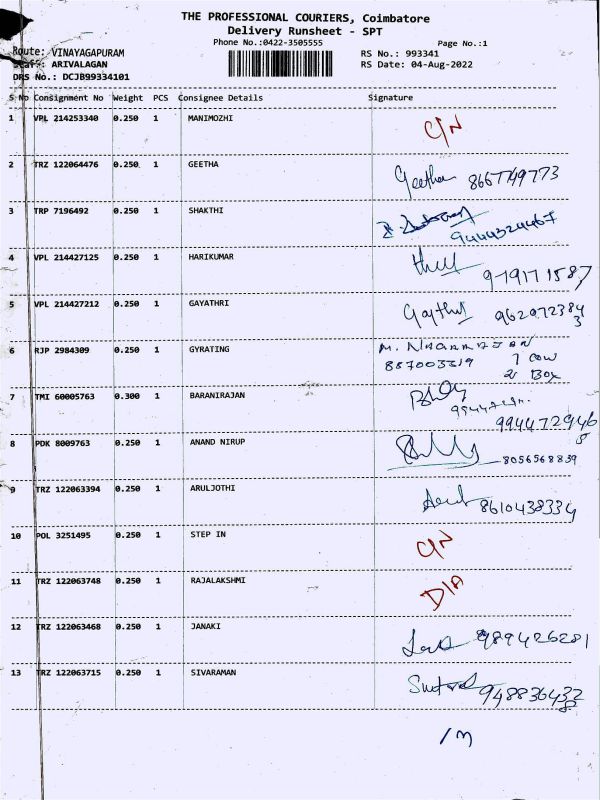 THE PROFESSIONAL COURIERS, Coimbatore
Delivery Runsheet - SPT
Phone No.:0422-3505555 Page No.:1
Route: VINAYAGAPURAM RS No.: 993341
Staff: ARIVALAGAN RS Date: 04-Aug-2022
DRS No.: DCJB99334101
S No Consignment No Weight PCS Consignee Details Signature
1 VPL 214253340 0.250 1 MANIMOZHI C/N
2 TRZ 122064476 0.250 1 GEETHA Geetha 8667749773
3 TRP 7196492 0.250 1 SHAKTHI
9444324467
4 VPL 214427125 0.250 1 HARIKUMAR
979171587
5 VPL 214427212 0.250 1 GAYATHRI
6 RJP 2984309 0.250 1 GYRATING
887003219 1 cow
2 Box
7 TMI 60005763 0.300 1 BARANIRAJAN
8 PDK 8009763 0.250 1 ANAND NIRUP
8056568839
9 TRZ 122063394 0.250 1 ARULJOTHI 8610438334
10 POL 3251495 0.250 1 STEP IN C/N
11 TRZ 122063748 0.250 1 RAJALAKSHMI D/A
12 TRZ 122063468 0.250 1 JANAKI 989426281
13 TRZ 122063715 0.250 1 SIVARAMAN